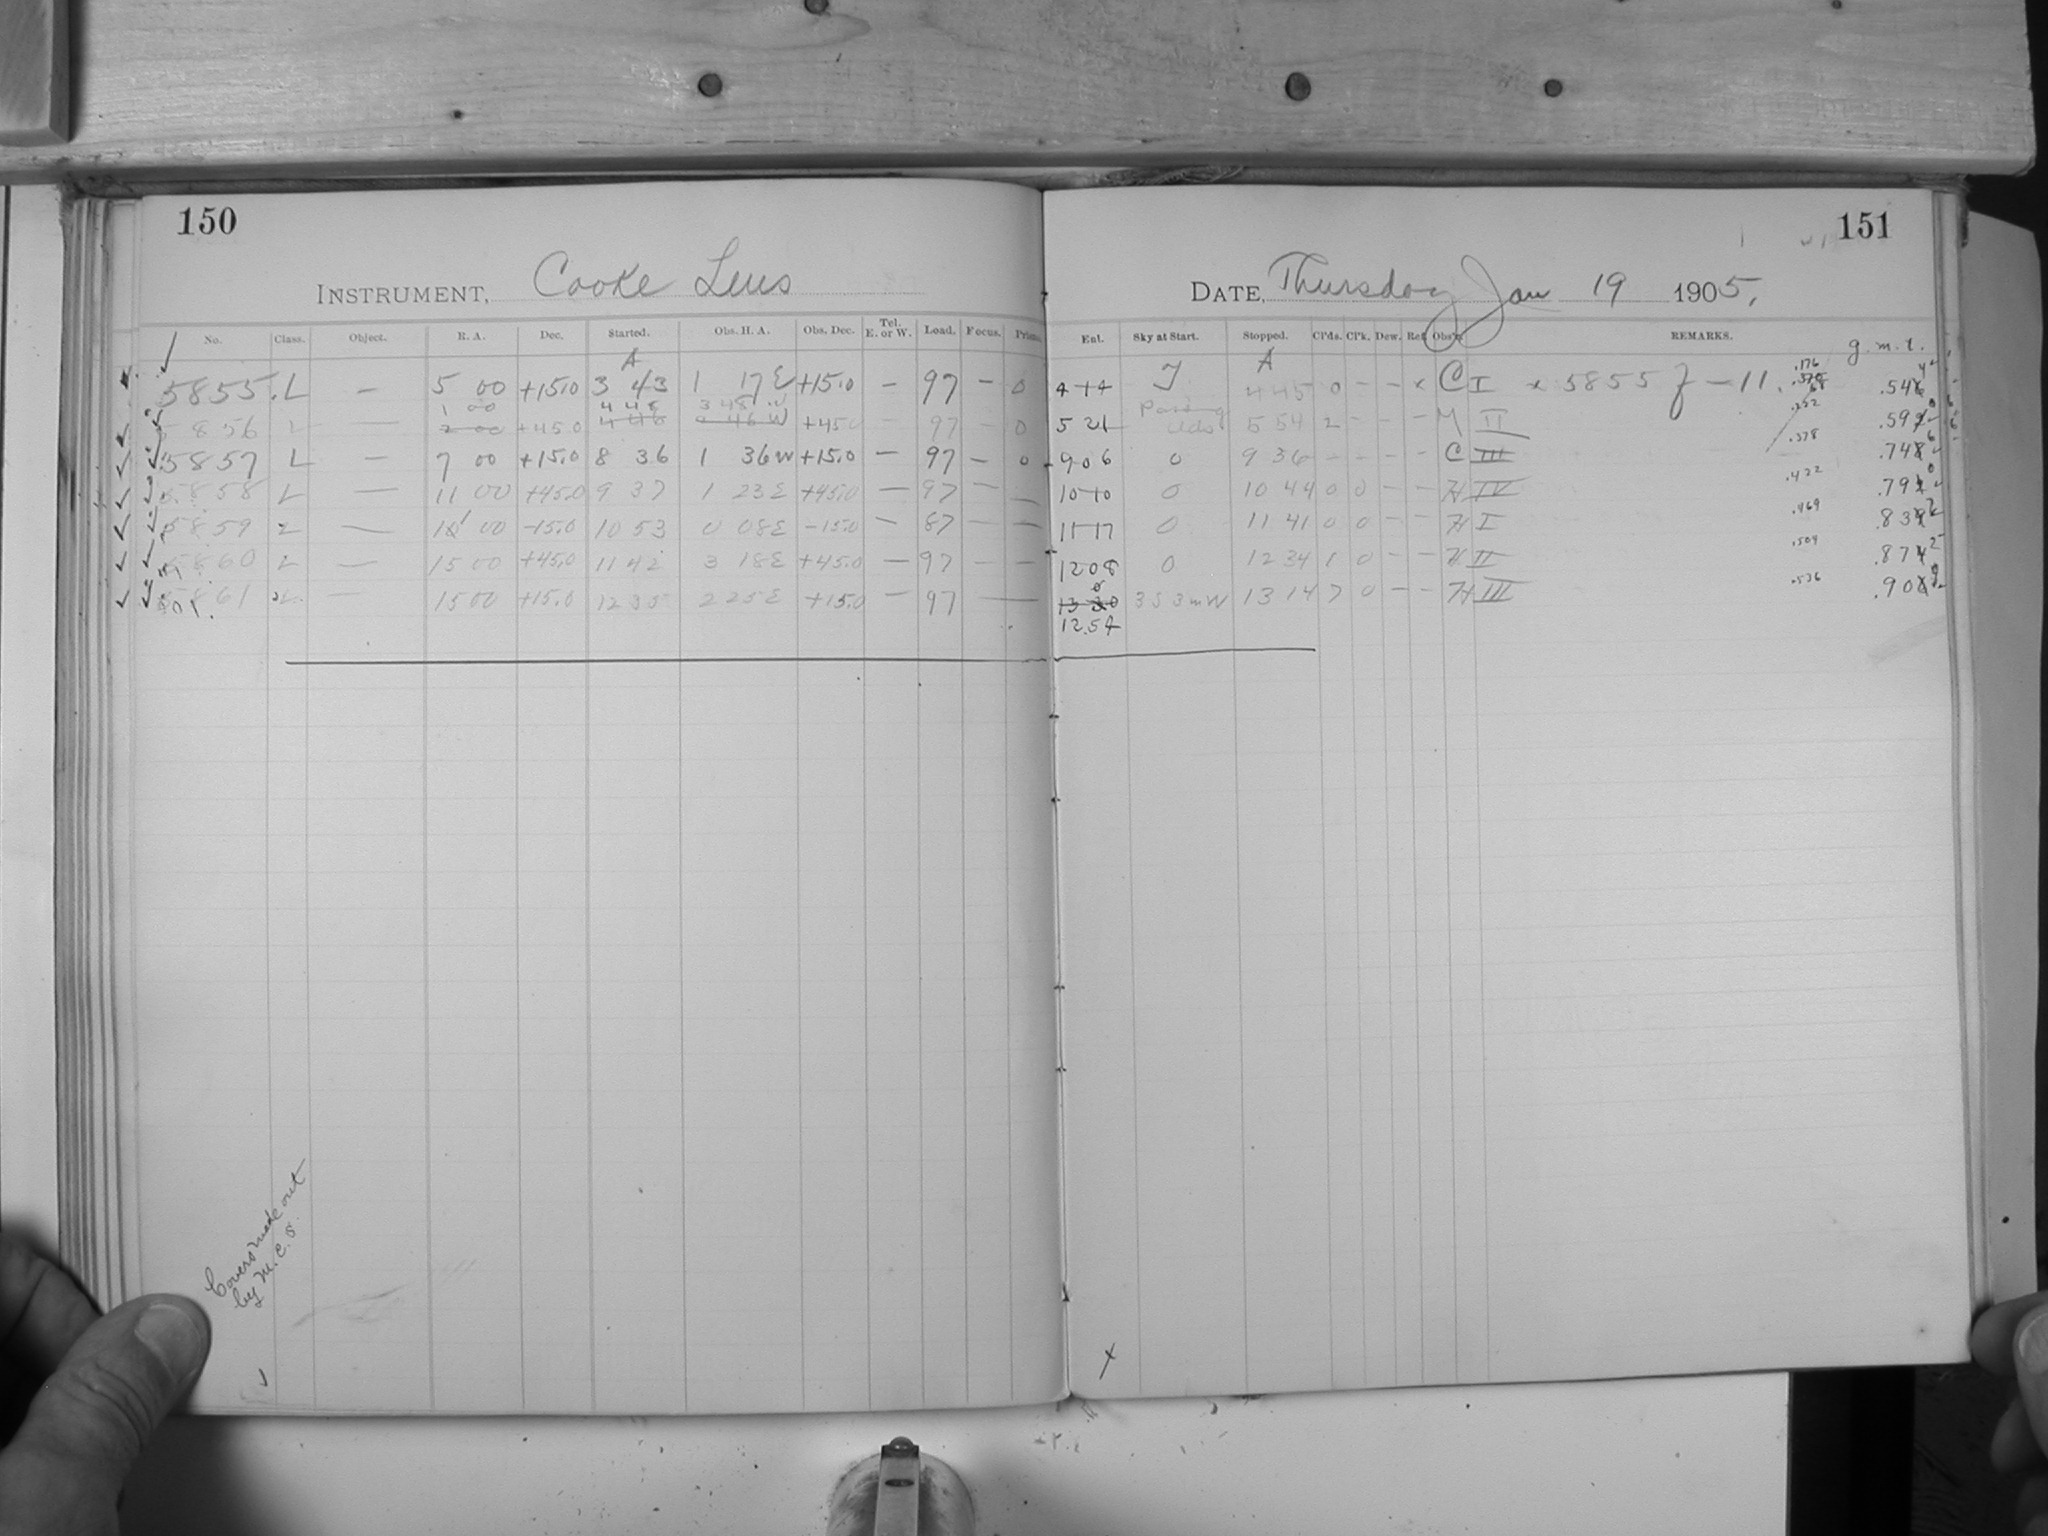 150
INSTRUMENT, Cooke Lens
No. Class. Object. R. A. Dec. Started. Obs. H. A. Obs. Dec. Tel. E. or W. Load. Focus. Prism.
A
5855 L — 5 00 +15.0 3 43 1 17 E +15.0 — 97 — 0
1 00 4 48 3 48 W
5856 L — 2 00 +45.0 4 48 2 48 W +45.0 — 97 — 0
5857 L — 7 00 +15.0 8 36 1 36 W +15.0 — 97 — 0
5858 L — 11 00 +45.0 9 37 1 23 E +45.0 — 97 — —
5859 L — 00 -15.0 10 53 0 08 E -15.0 — 87 — —
5860 L — 15 00 +45.0 11 42 3 18 E +45.0 — 97 — —
5861 L — 15 00 +15.0 12 35 2 25 E +15.0 — 97 —
Covers made out
by M. C. S.
151
DATE, Thursday Jan 19 1905.
Ent. Sky at Start. Stopped. Cl'ds. Cl'k. Dew. Ref. Obs'r. REMARKS.
g. m. t.
A
4 14 4 45 0 — — x C I x 5855 f — 11. .176 .546
5 21 Passing clds 5 54 2 — — — M II .222 .592
9 06 0 9 36 — — — — C III .378 .748
10 10 0 10 44 0 0 — — H IV .422 .79
11 17 0 11 41 0 0 — — H I .469 .839
12 08 0 12 34 1 0 — — H II .504 .874
13 30 3 S 3 m W 13 14 7 0 — — H III .536 .90
12.54